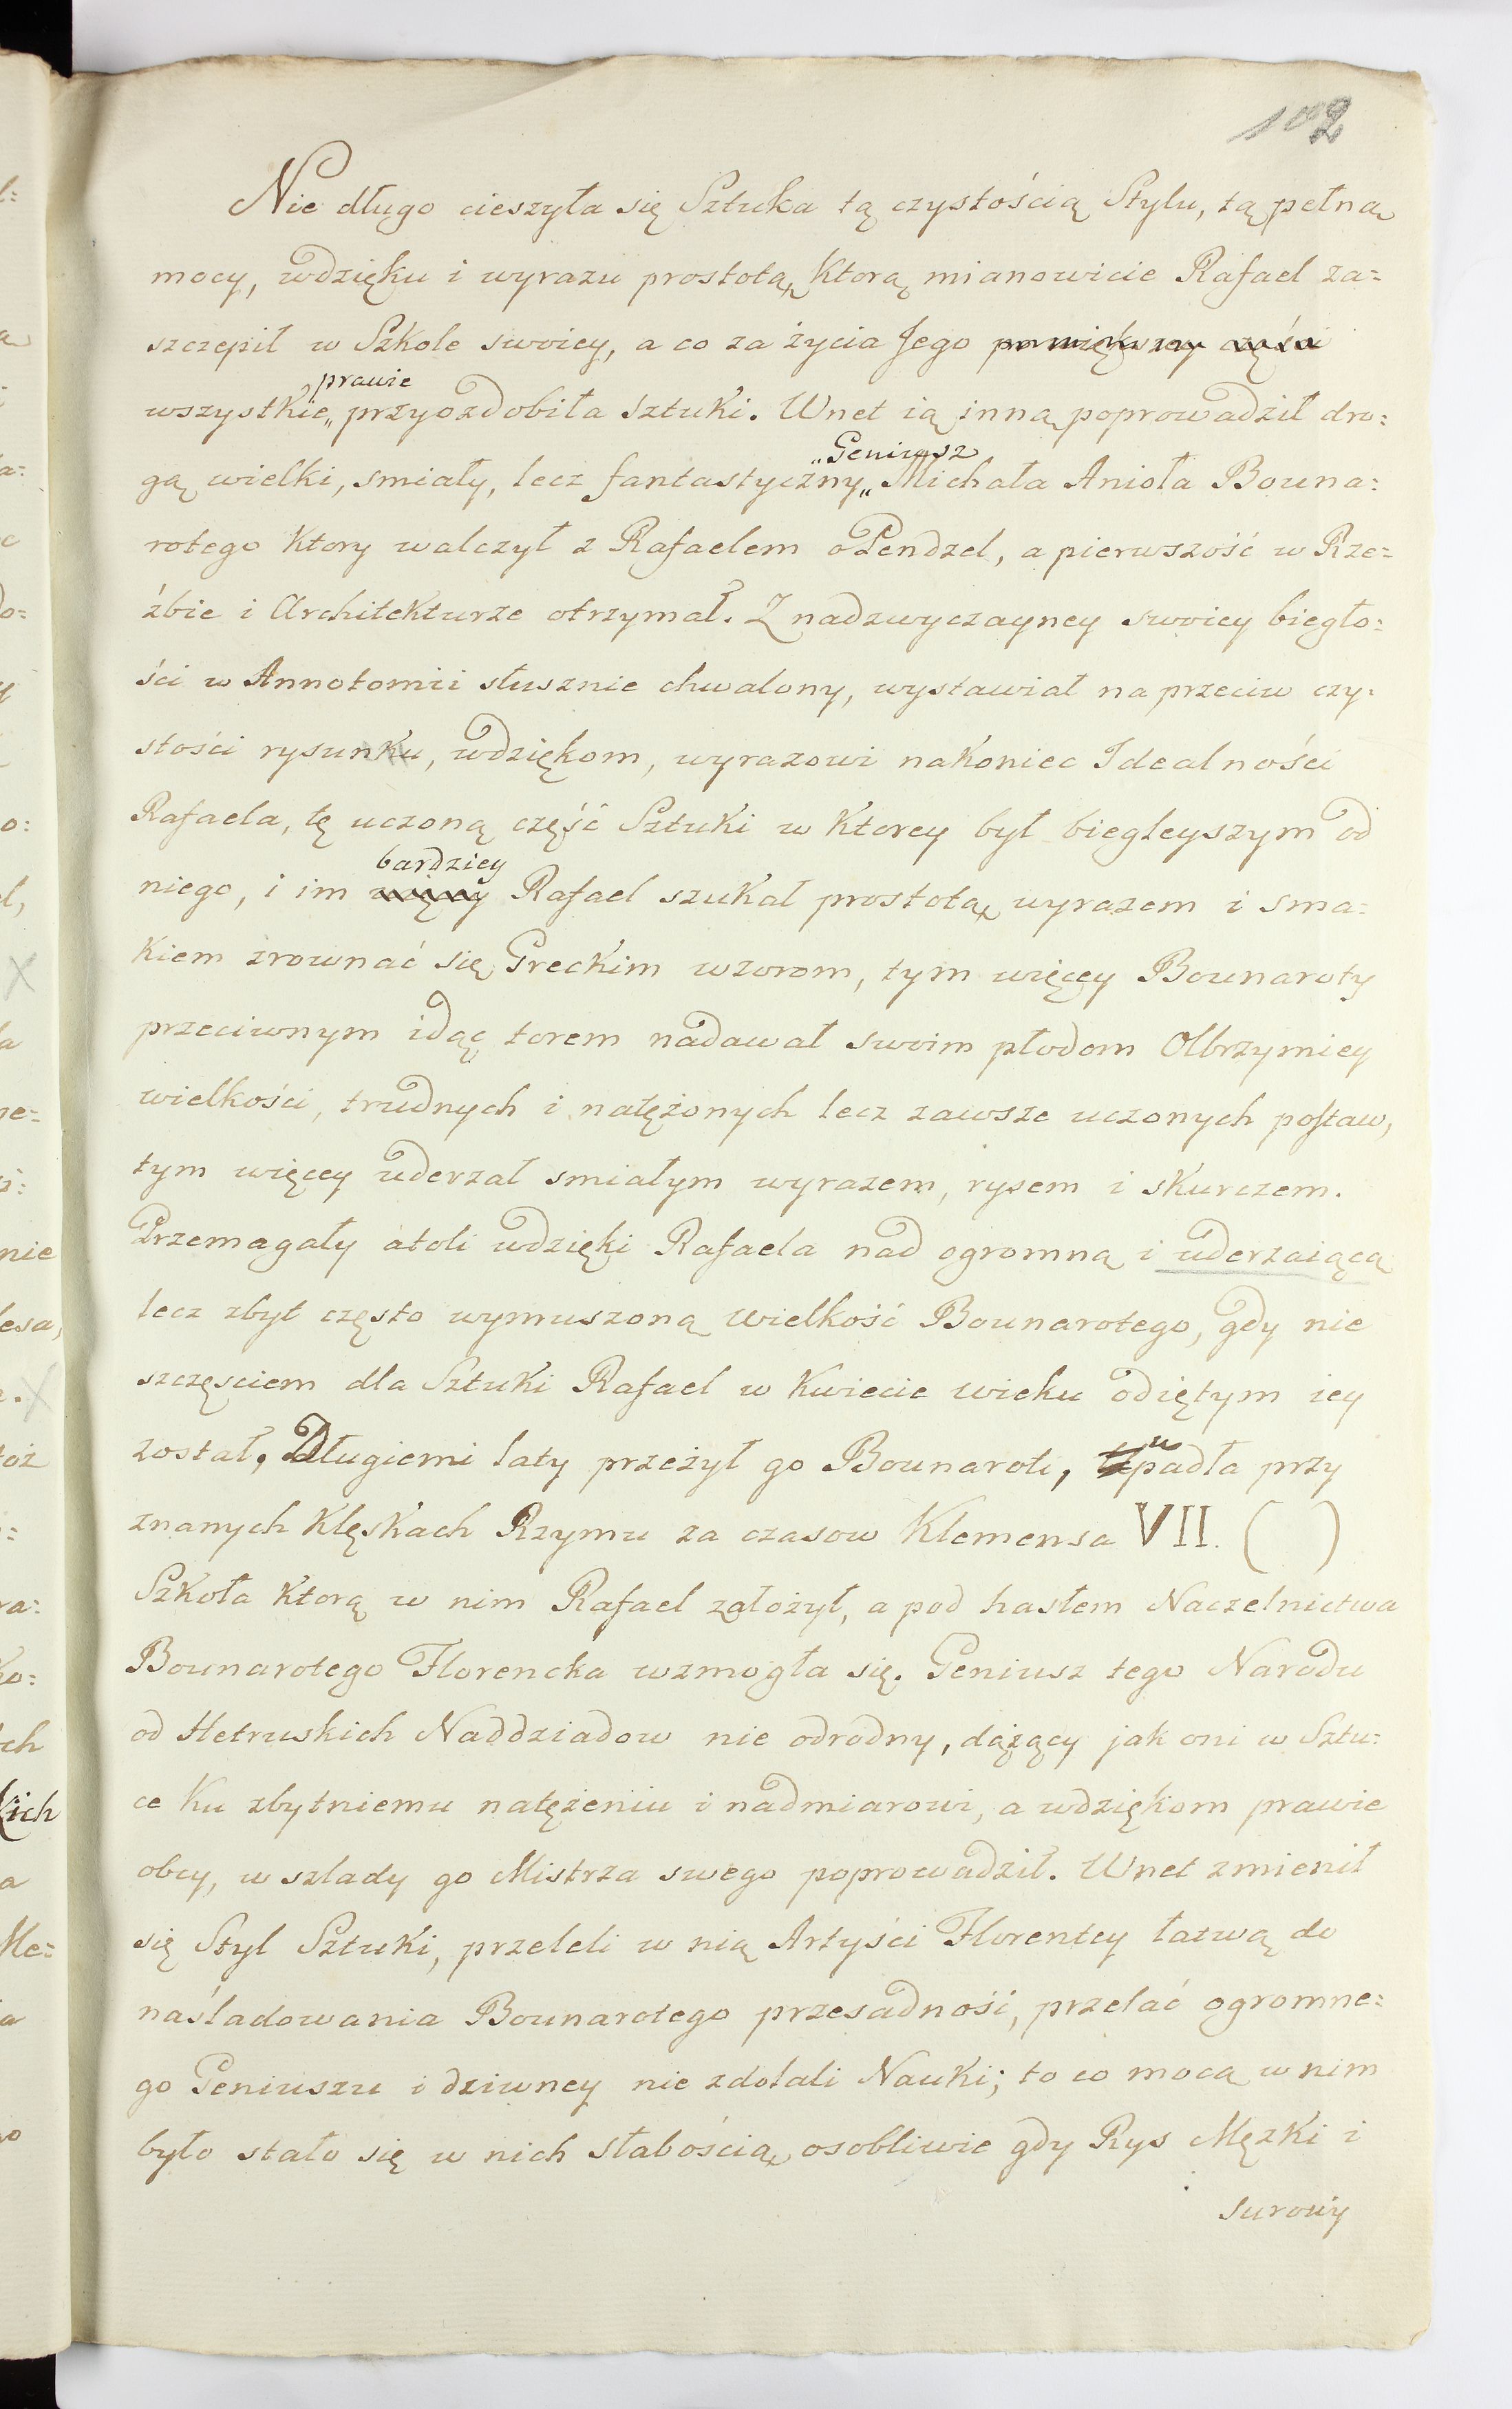 102
Nie długo cieszyła się Sztuka tą czystością Stylu, tą pełną
mocy, wdzięku i wyrazu prostotą, Ktorą mianowicie Rafael za=
szczepił w Szkole swoiey, a co za życia Jego po większey części
prawie
wszystkie„ przyozdobiła sztuki. Wnet ią inną poprowadził dro=
„Geniusz
gą wielki, smiały, lecz fantastyczny„ Michała Anioła Bouna=
rotego Ktory walczył z Rafaelem o Pendzel, a pierwszość w Rze=
źbie i Architekturze otrzymał. Z nadzwyczayney swoiey biegło=
ści w Annotomii słusznie chwalony, wystawiał na przeciw czy=
stości rysunku, wdziękom, wyrazowi nakoniec Idealności
Rafaela, tę uczoną część Sztuki w Ktorey był biegleyszym od
bardziey
niego, i im więcey Rafael szukał prostotą, wyrazem i sma=
Kiem zrownać się Greckim wzorom, tym więcey Bounaroty
przeciwnym idąc torem nadawał swoim płodom Olbrzymiey
wielkości, trudnych i natężonych lecz zawsze uczonych postaw,
tym więcey uderzał smiałym wyrazem, rysem i skurczem.
Przemagały atoli wdzięki Rafaela nad ogromną i uderzaiącą
lecz zbyt często wymuszoną wielkość Bounarotego, gdy nie
szczęsciem dla Sztuki Rafael w Kwiecie wieku odiętym iey
został. Długiemi laty przeżył go Bounaroti, upadła przy
znanych Klęskach Rzymu za czasow Klemensa VII. ( )
Szkoła Ktorą w nim Rafael założył, a pod hasłem Naczelnictwa
Bounarotego Florencka wzmogła się. Geniusz tego Narodu
od Hetruskich Naddziadow nie odrodny, dążący jak oni w Sztu=
ce Ku zbytniemu natężeniu i nadmiarowi, a wdziękom prawie
obcy, w szlady go Mistrza swego poprowadził. Wnet zmienił
się Styl Sztuki, przeleli w nią Artyści Florentcy łatwą do
naśladowania Bounarotego przesadność, przelać ogromne=
go Geniuszu i dziwney nie zdołali Nauki; to co mocą w nim
było stało się w nich słabością, osobliwie gdy Rys Męzki i
surowy